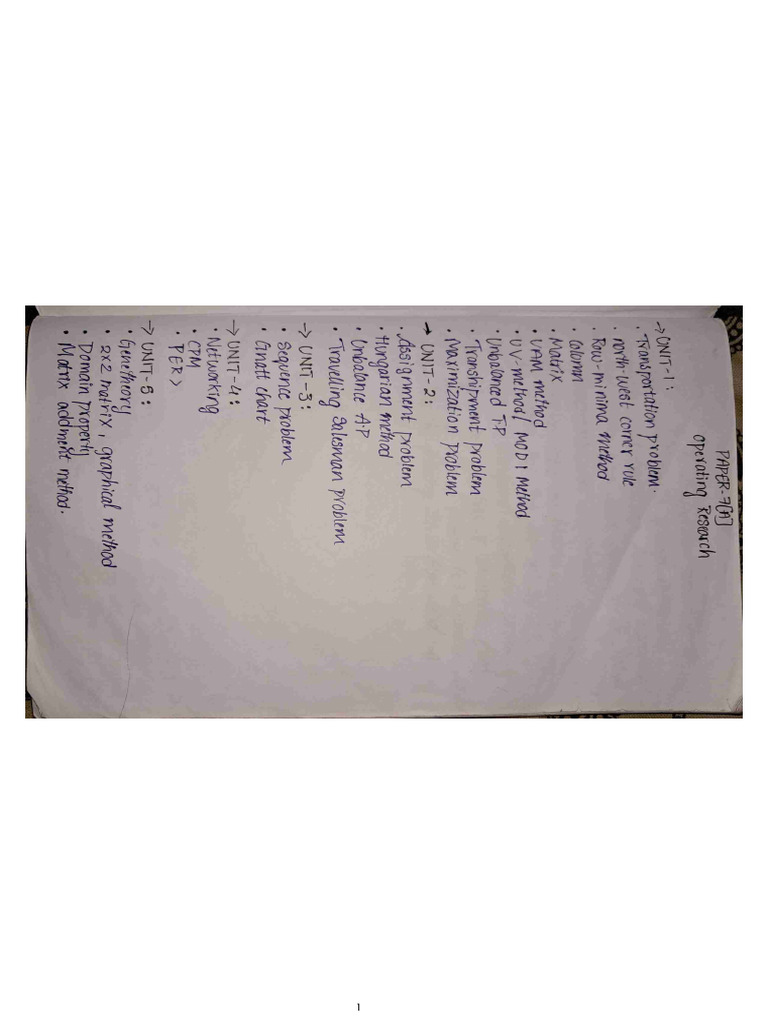 PAPER-7[A]
Operating Research
→ UNIT-1:
• Transportation problem.
• north-west corner rule
• Row-minima method
• Column
• Matrix
• VAM method
• UV-method/MODI Method
• Unbalanced T.P
• Transhipment problem
• Maximization problem
→ UNIT-2:
• Assignment problem
• Hungarian method
• Unbalance AP
• Travelling Salesman problem
→ UNIT-3:
• Sequence problem
• Gnatt chart
→ UNIT-4:
• Networking
• CPM
• PER>
→ UNIT-5:
• Gametheory
• 2x2 matrix, graphical method
• Domain property
• Matrix method.
1